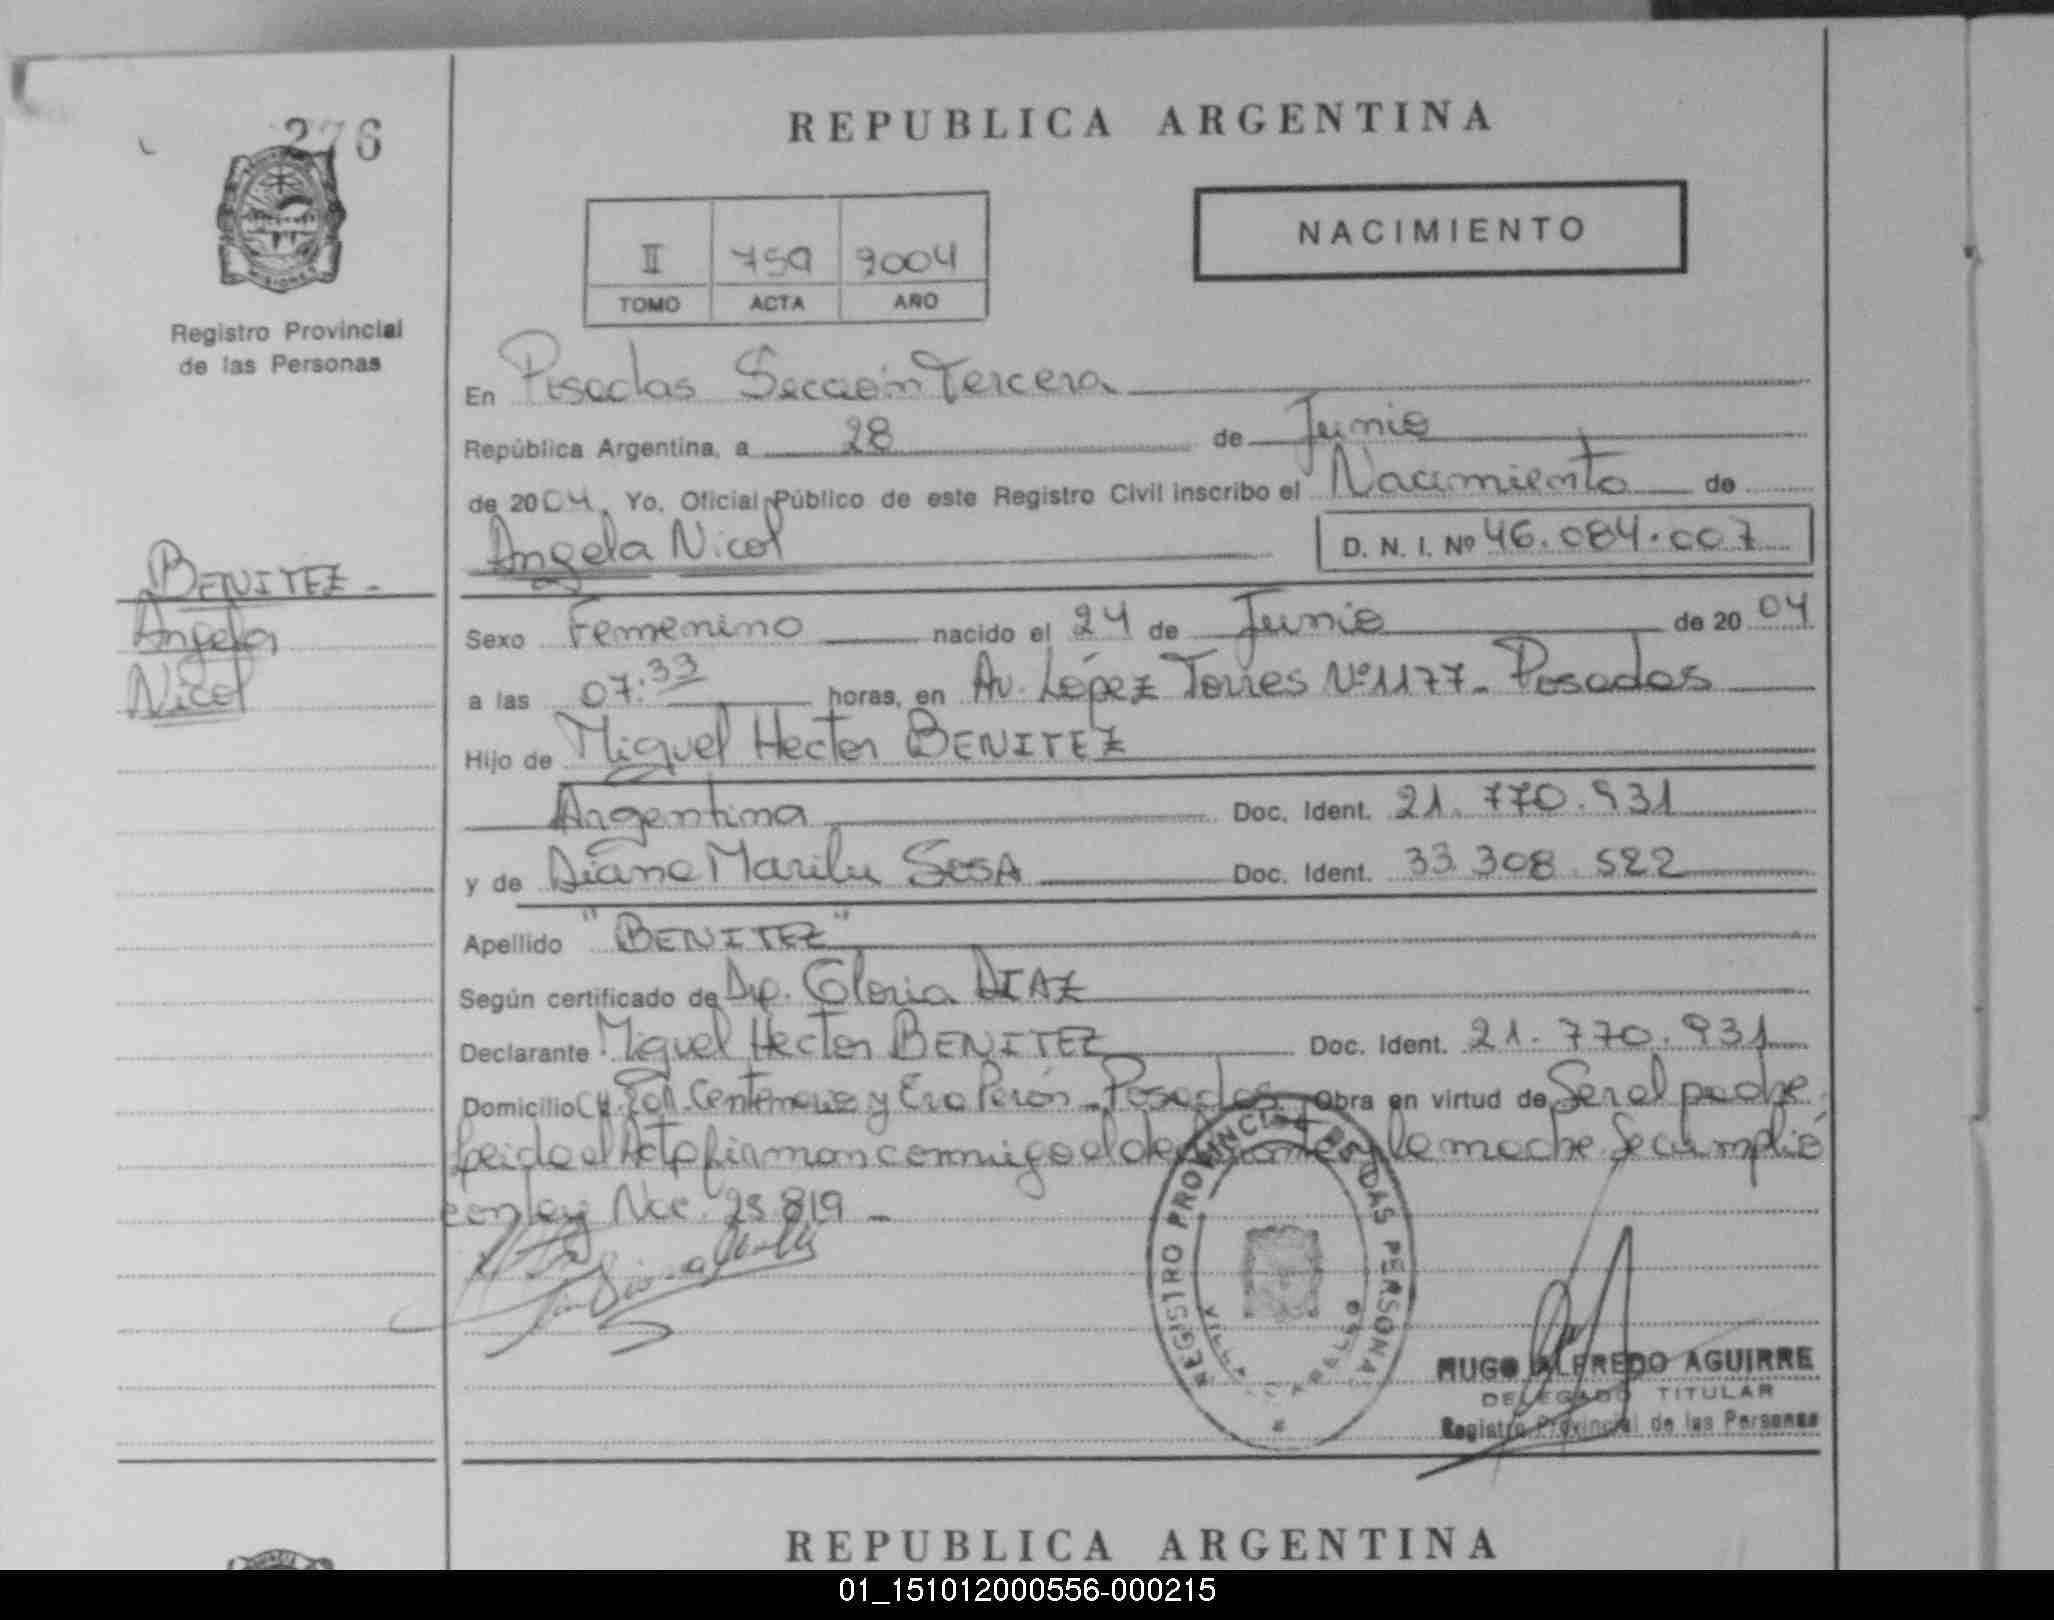 276
REPUBLICA ARGENTINA
NACIMIENTO
II 759 2004
TOMO ACTA AÑO
Registro Provincial
de las Personas
En Posadas Sección Tercera
República Argentina, a 28 de Junio
de 2004. Yo, Oficial Público de este Registro Civil inscribo el Nacimiento de
Angela Nicol D. N. I. Nº 46.084.007
BENITEZ -
Angela
Nicol
Sexo Femenino nacido el 24 de Junio de 2004
a las 07:33 horas, en Av. López Torres Nº 1177 - Posadas
Hijo de Miguel Hector BENITEZ
Argentina Doc. Ident. 21.770.931
y de Diana Marilu SOSA Doc. Ident. 33.308.522
Apellido "BENITEZ"
Según certificado de Dra. Gloria DIAZ
Declarante Miguel Hector BENITEZ Doc. Ident. 21.770.931
Domicilio Centenario y Eva Perón - Posadas Obra en virtud de Ser el padre
Leida el Acta firman conmigo el declarante y la madre Se cumplió
con ley Nac. 25.819 -
REGISTRO PROVINCIAL DE LAS PERSONAS
HUGO ALFREDO AGUIRRE
DELEGADO TITULAR
Registro Provincial de las Personas
REPUBLICA ARGENTINA
01_151012000556-000215